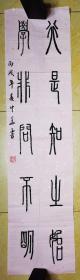 行是知之始
學非問不明
丙戌年夏